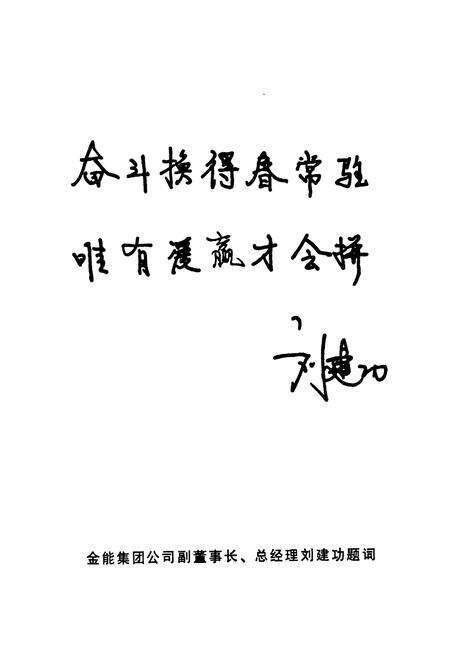 奋斗换得春常驻
唯有爱赢才会拼
刘建功
金能集团公司副董事长、总经理刘建功题词